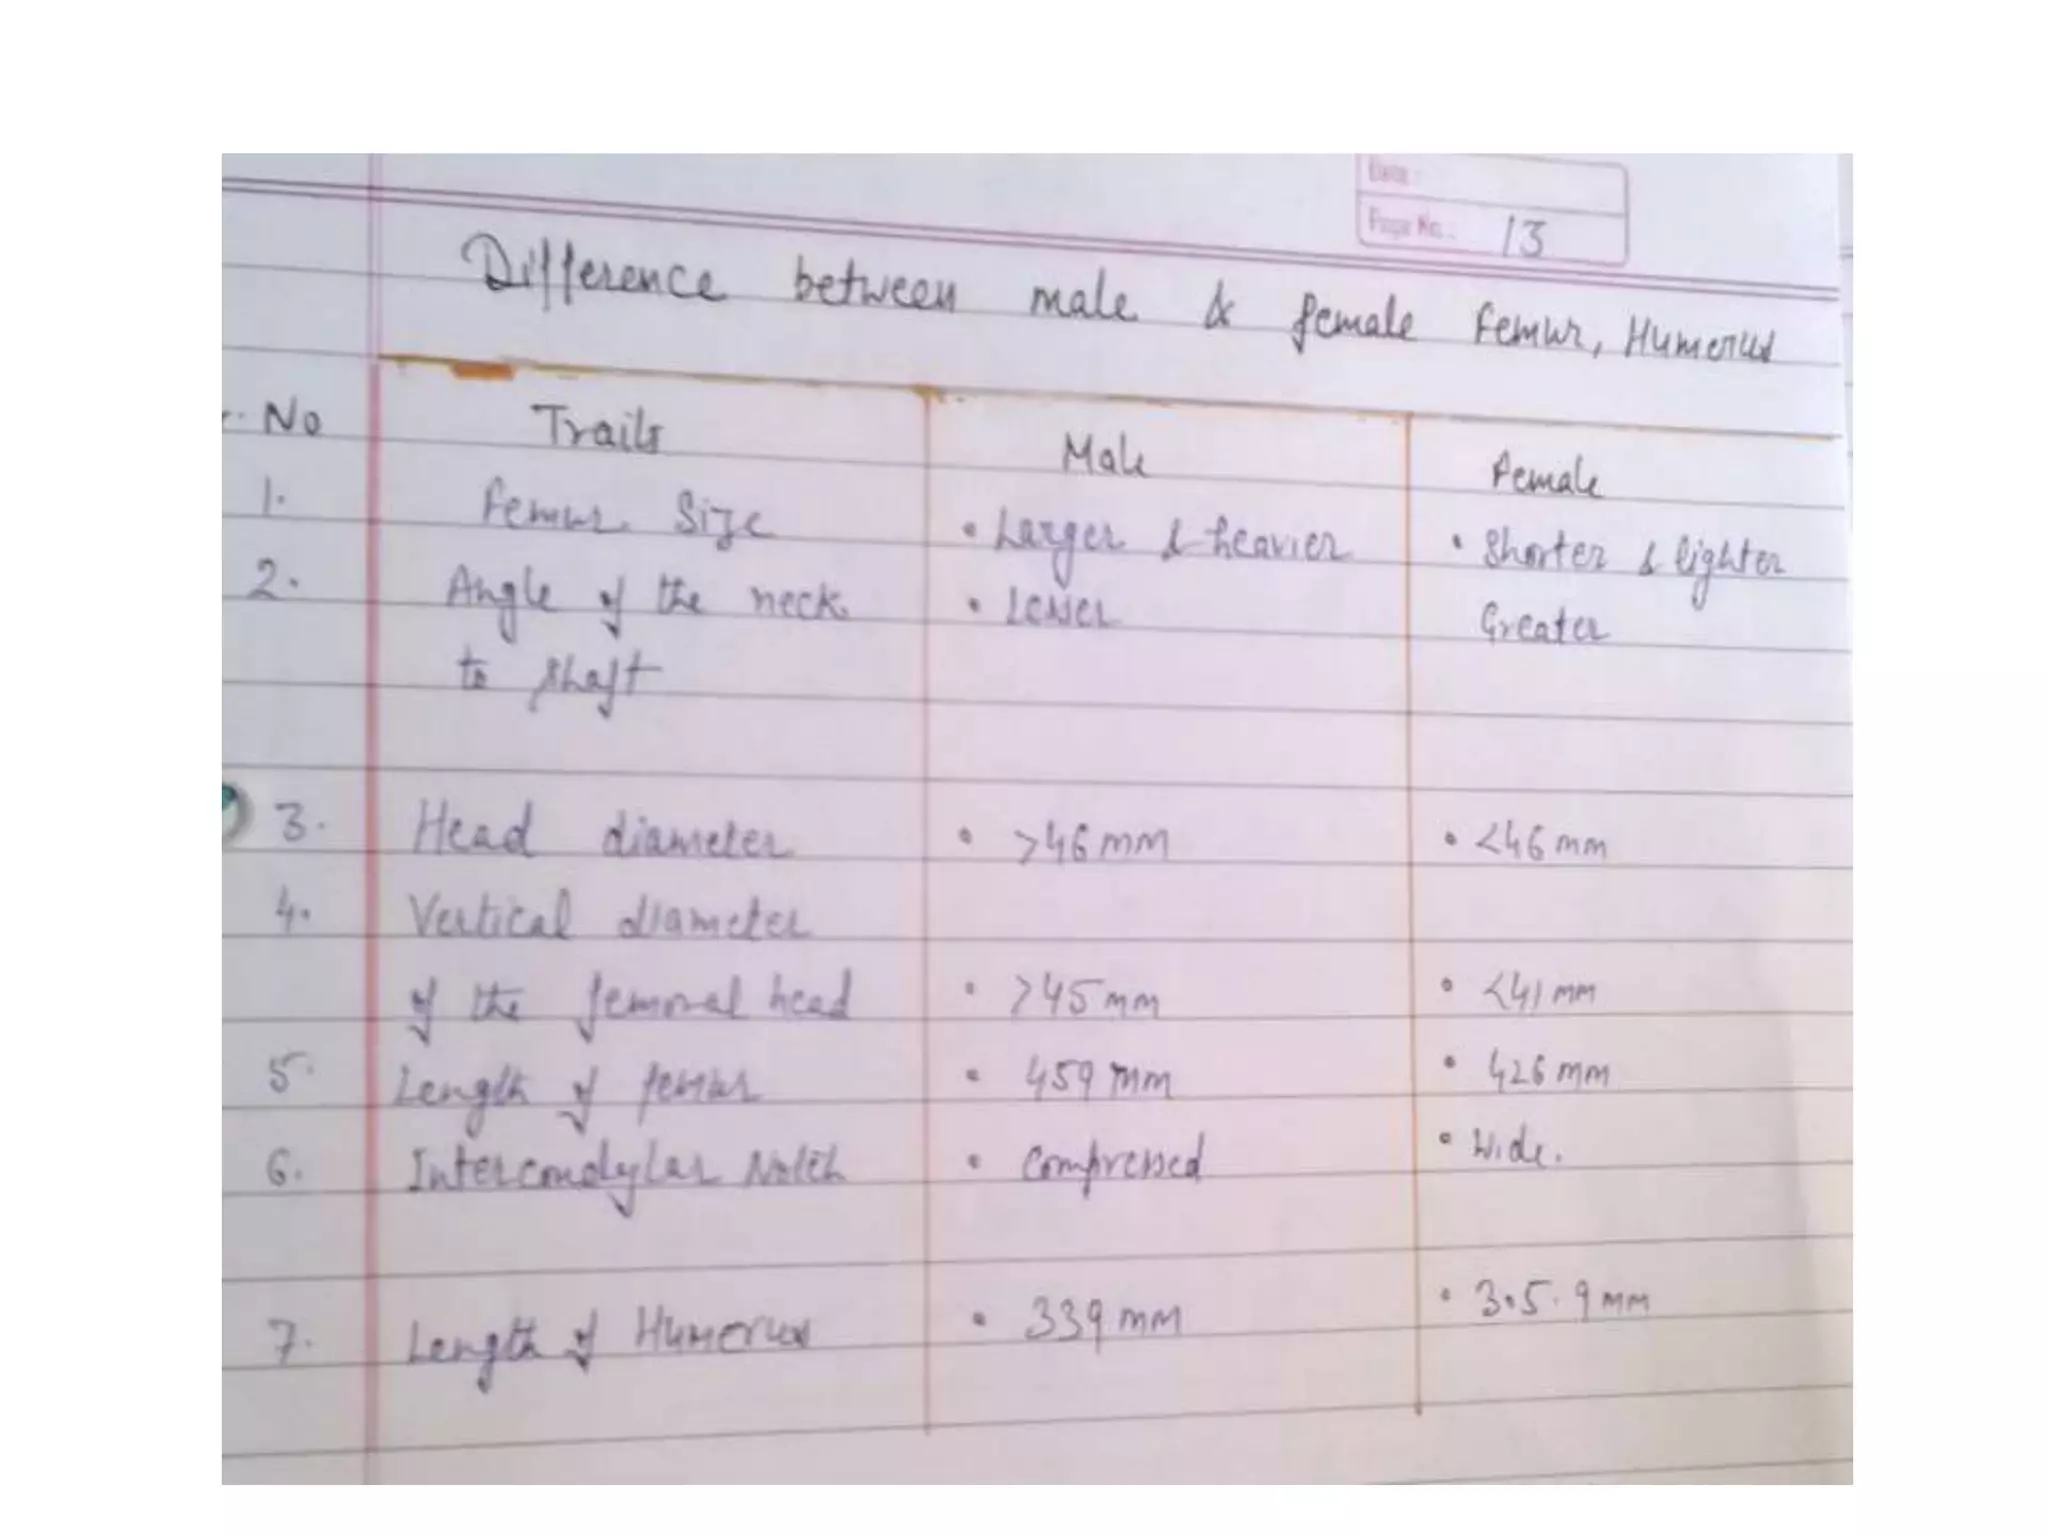 Date :
Page No. : 13
Difference between male & female Femur, Humerus
No Traits Male Female
1. Femur Size • Larger & heavier • Shorter & lighter
2. Angle of the neck • Lesser Greater
to shaft
3. Head diameter • >46 mm • <46 mm
4. Vertical diameter
of the femoral head • >45 mm • <41 mm
5. Length of femur • 459 mm • 426 mm
6. Intercondylar Notch • Compressed • Wide.
7. Length of Humerus • 339 mm • 3.5.9 mm